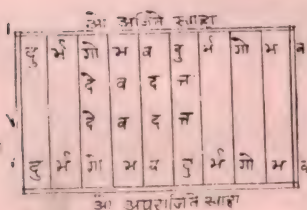 ओं अजिते स्वाहा
दु र्भ गो म व दु र्भ गो म व
दे व द त्त
दे व द त्त
दु र्भ गो म व दु र्भ गो म व
ओं अपराजिते स्वाहा